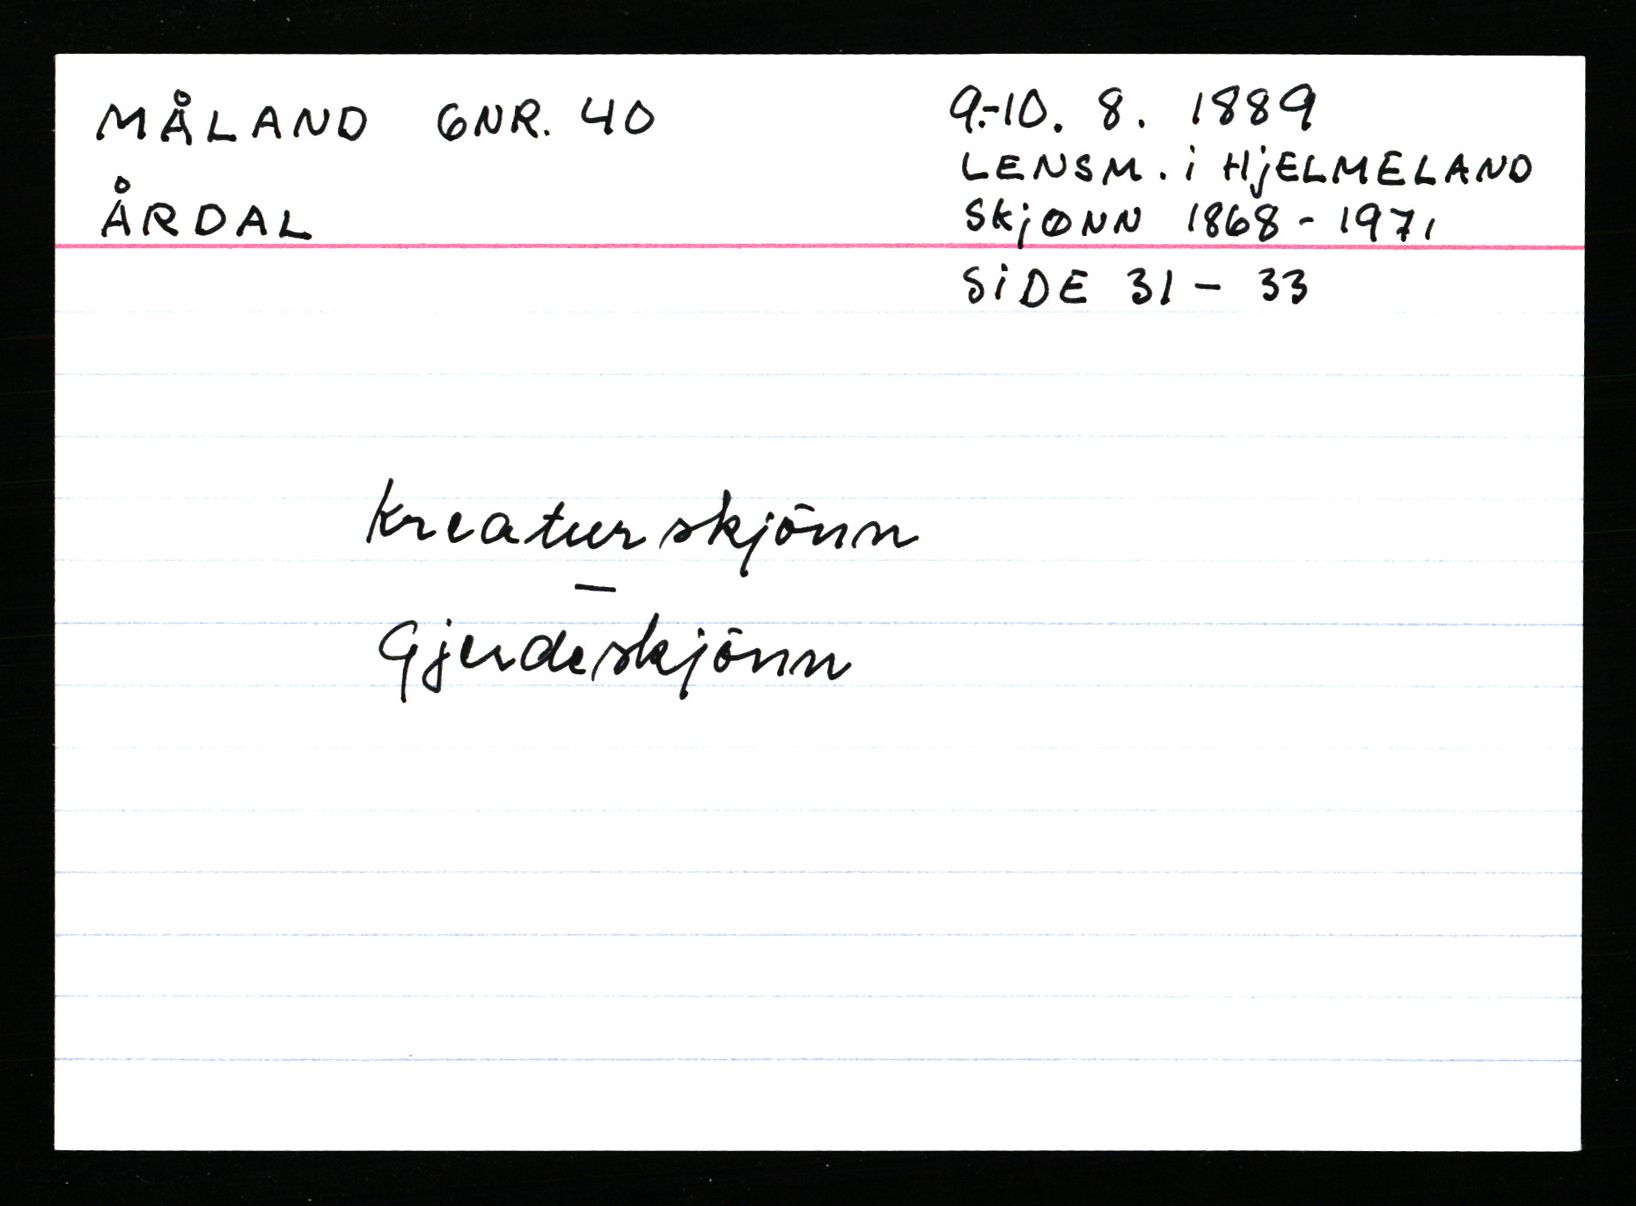 MÅLAND GNR. 40
ÅRDAL
9.-10. 8. 1889
LENSM. i HjELMELAND
SkjØNN 1868 - 1971
SiDE 31 - 33
Kreaturskjōnn
—
Gjerdeskjōnn